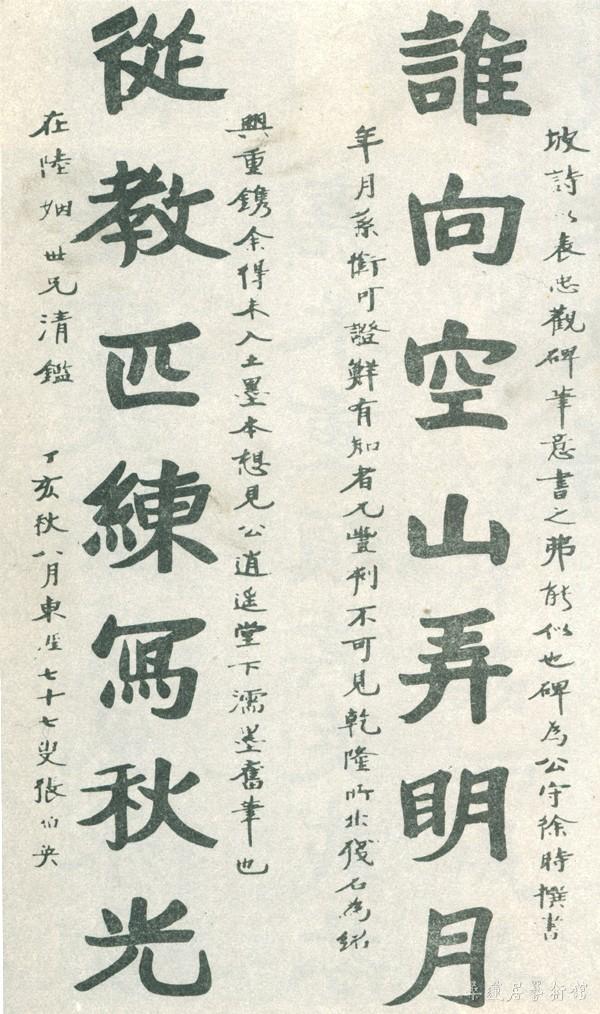 坡詩以表忠觀碑筆意書之弗能似也碑為公守徐時撰書
誰向空山弄明月
年月系銜可證鮮有知者元豐刻不可見乾隆所出殘石為紹
興重鐫余得未入土墨本想見公逍遙堂下濡墨奮筆也
從教匹練寫秋光
在陸姻世兄清鑑 丁亥秋八月東涯七十七叟張伯英
蓮居藝術館